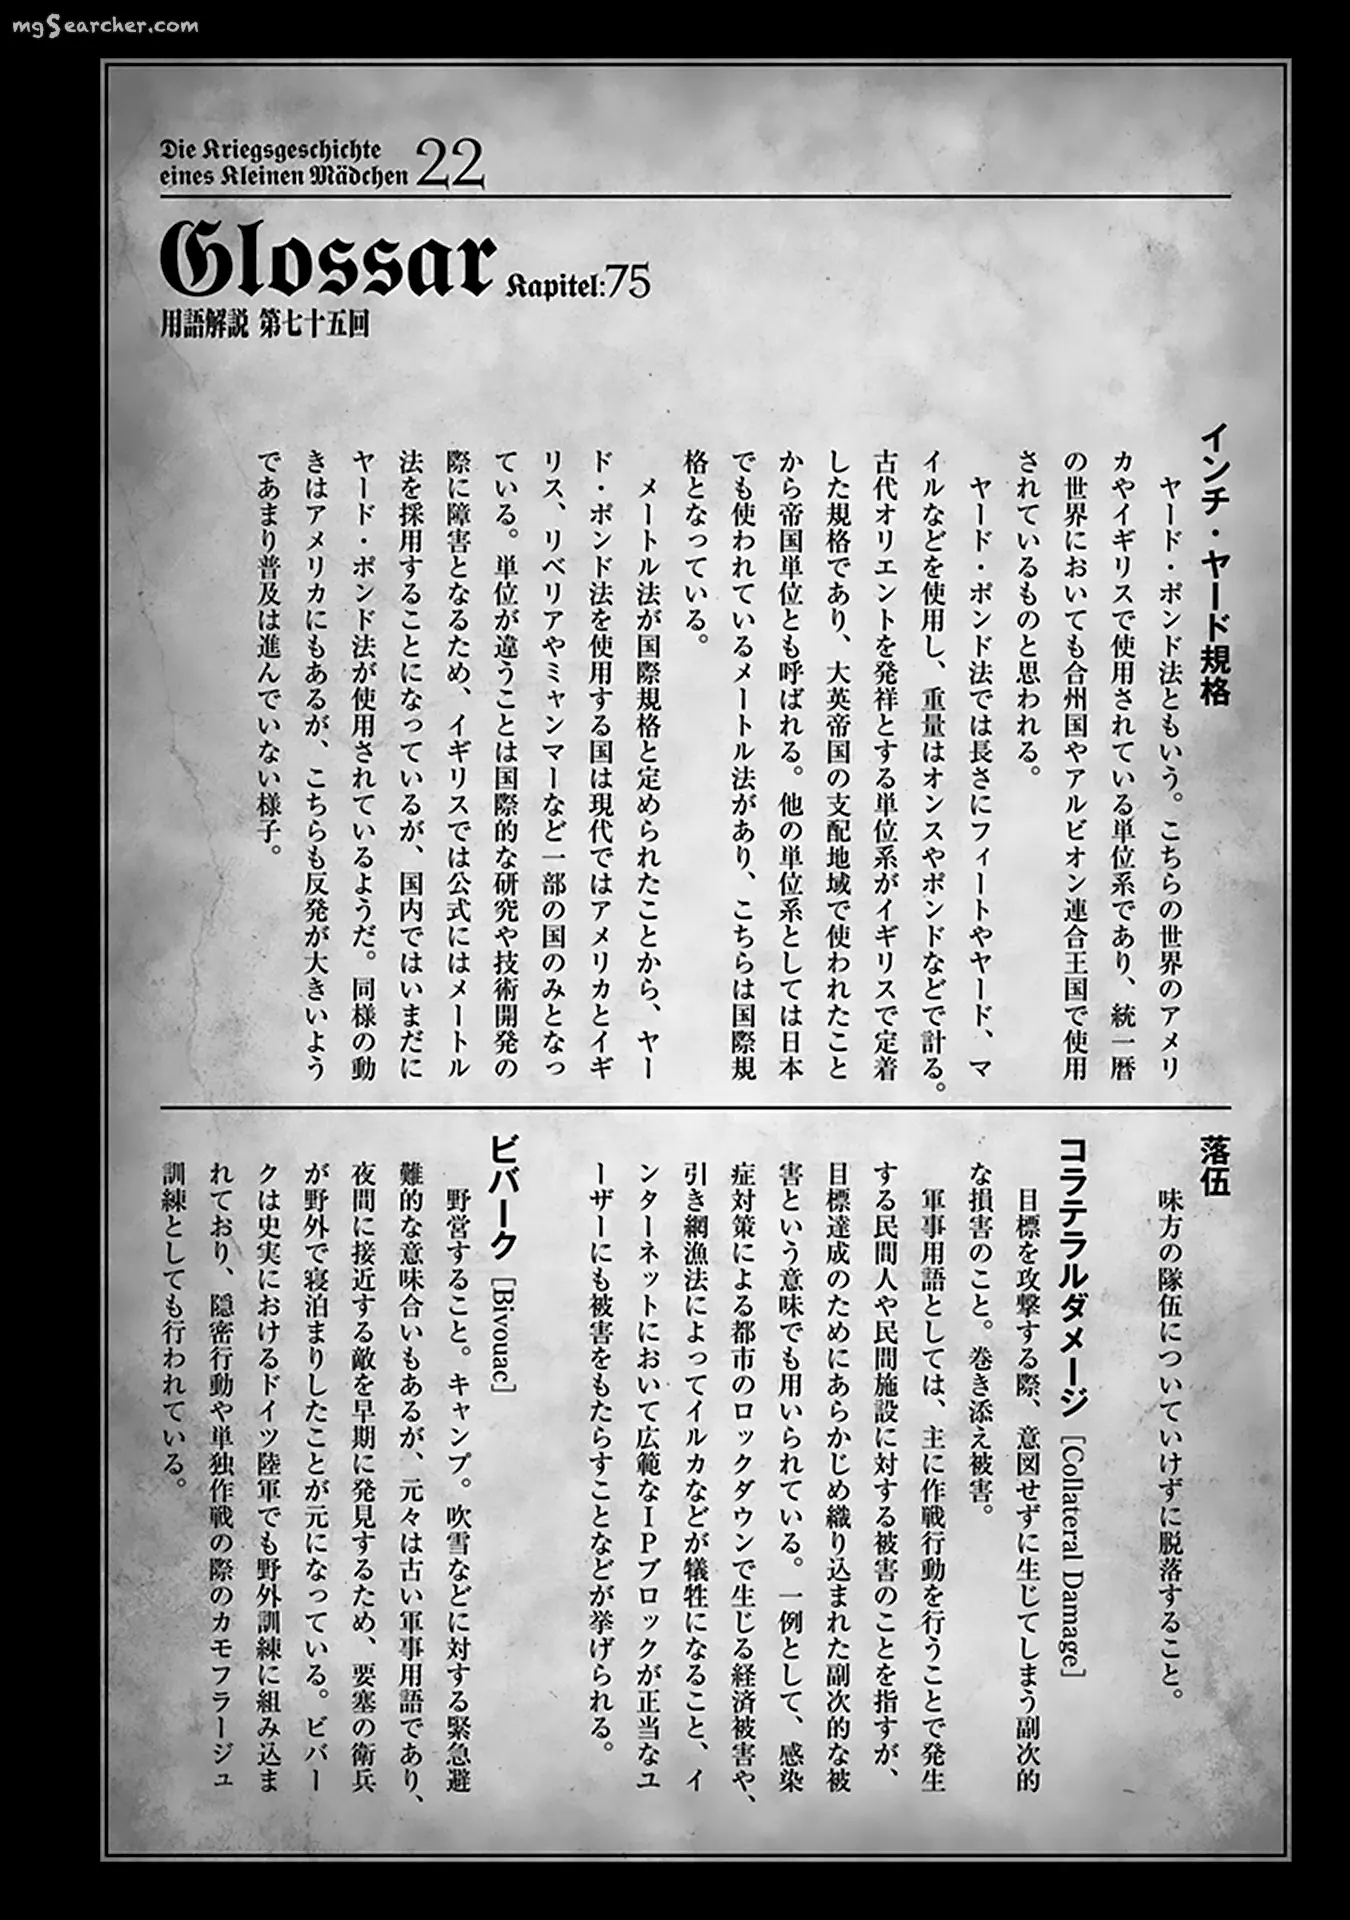 mgSearcher.com
Die Kriegsgeschichte
eines Kleinen Mädchen 22
Glossar Kapitel:75
用語解説 第七十五回
インチ・ヤード規格
ヤード・ポンド法ともいう。こちらの世界のアメリ
カやイギリスで使用されている単位系であり、統一暦
の世界においても合州国やアルビオン連合王国で使用
されているものと思われる。
ヤード・ポンド法では長さにフィートやヤード、マ
イルなどを使用し、重量はオンスやポンドなどで計る。
古代オリエントを発祥とする単位系がイギリスで定着
した規格であり、大英帝国の支配地域で使われたこと
から帝国単位とも呼ばれる。他の単位系としては日本
でも使われているメートル法があり、こちらは国際規
格となっている。
メートル法が国際規格と定められたことから、ヤー
ド・ポンド法を使用する国は現代ではアメリカとイギ
リス、リベリアやミャンマーなど一部の国のみとなっ
ている。単位が違うことは国際的な研究や技術開発の
際に障害となるため、イギリスでは公式にはメートル
法を採用することになっているが、国内ではいまだに
ヤード・ポンド法が使用されているようだ。同様の動
きはアメリカにもあるが、こちらも反発が大きいよう
であまり普及は進んでいない様子。
落伍
味方の隊伍についていけずに脱落すること。
コラテラルダメージ［Collateral Damage］
目標を攻撃する際、意図せずに生じてしまう副次的
な損害のこと。巻き添え被害。
軍事用語としては、主に作戦行動を行うことで発生
する民間人や民間施設に対する被害のことを指すが、
目標達成のためにあらかじめ織り込まれた副次的な被
害という意味でも用いられている。一例として、感染
症対策による都市のロックダウンで生じる経済被害や、
引き網漁法によってイルカなどが犠牲になること、イ
ンターネットにおいて広範なIPブロックが正当なユ
ーザーにも被害をもたらすことなどが挙げられる。
ビバーク［Bivouac］
野営すること。キャンプ。吹雪などに対する緊急避
難的な意味合いもあるが、元々は古い軍事用語であり、
夜間に接近する敵を早期に発見するため、要塞の衛兵
が野外で寝泊まりしたことが元になっている。ビバー
クは史実におけるドイツ陸軍でも野外訓練に組み込ま
れており、隠密行動や単独作戦の際のカモフラージュ
訓練としても行われている。